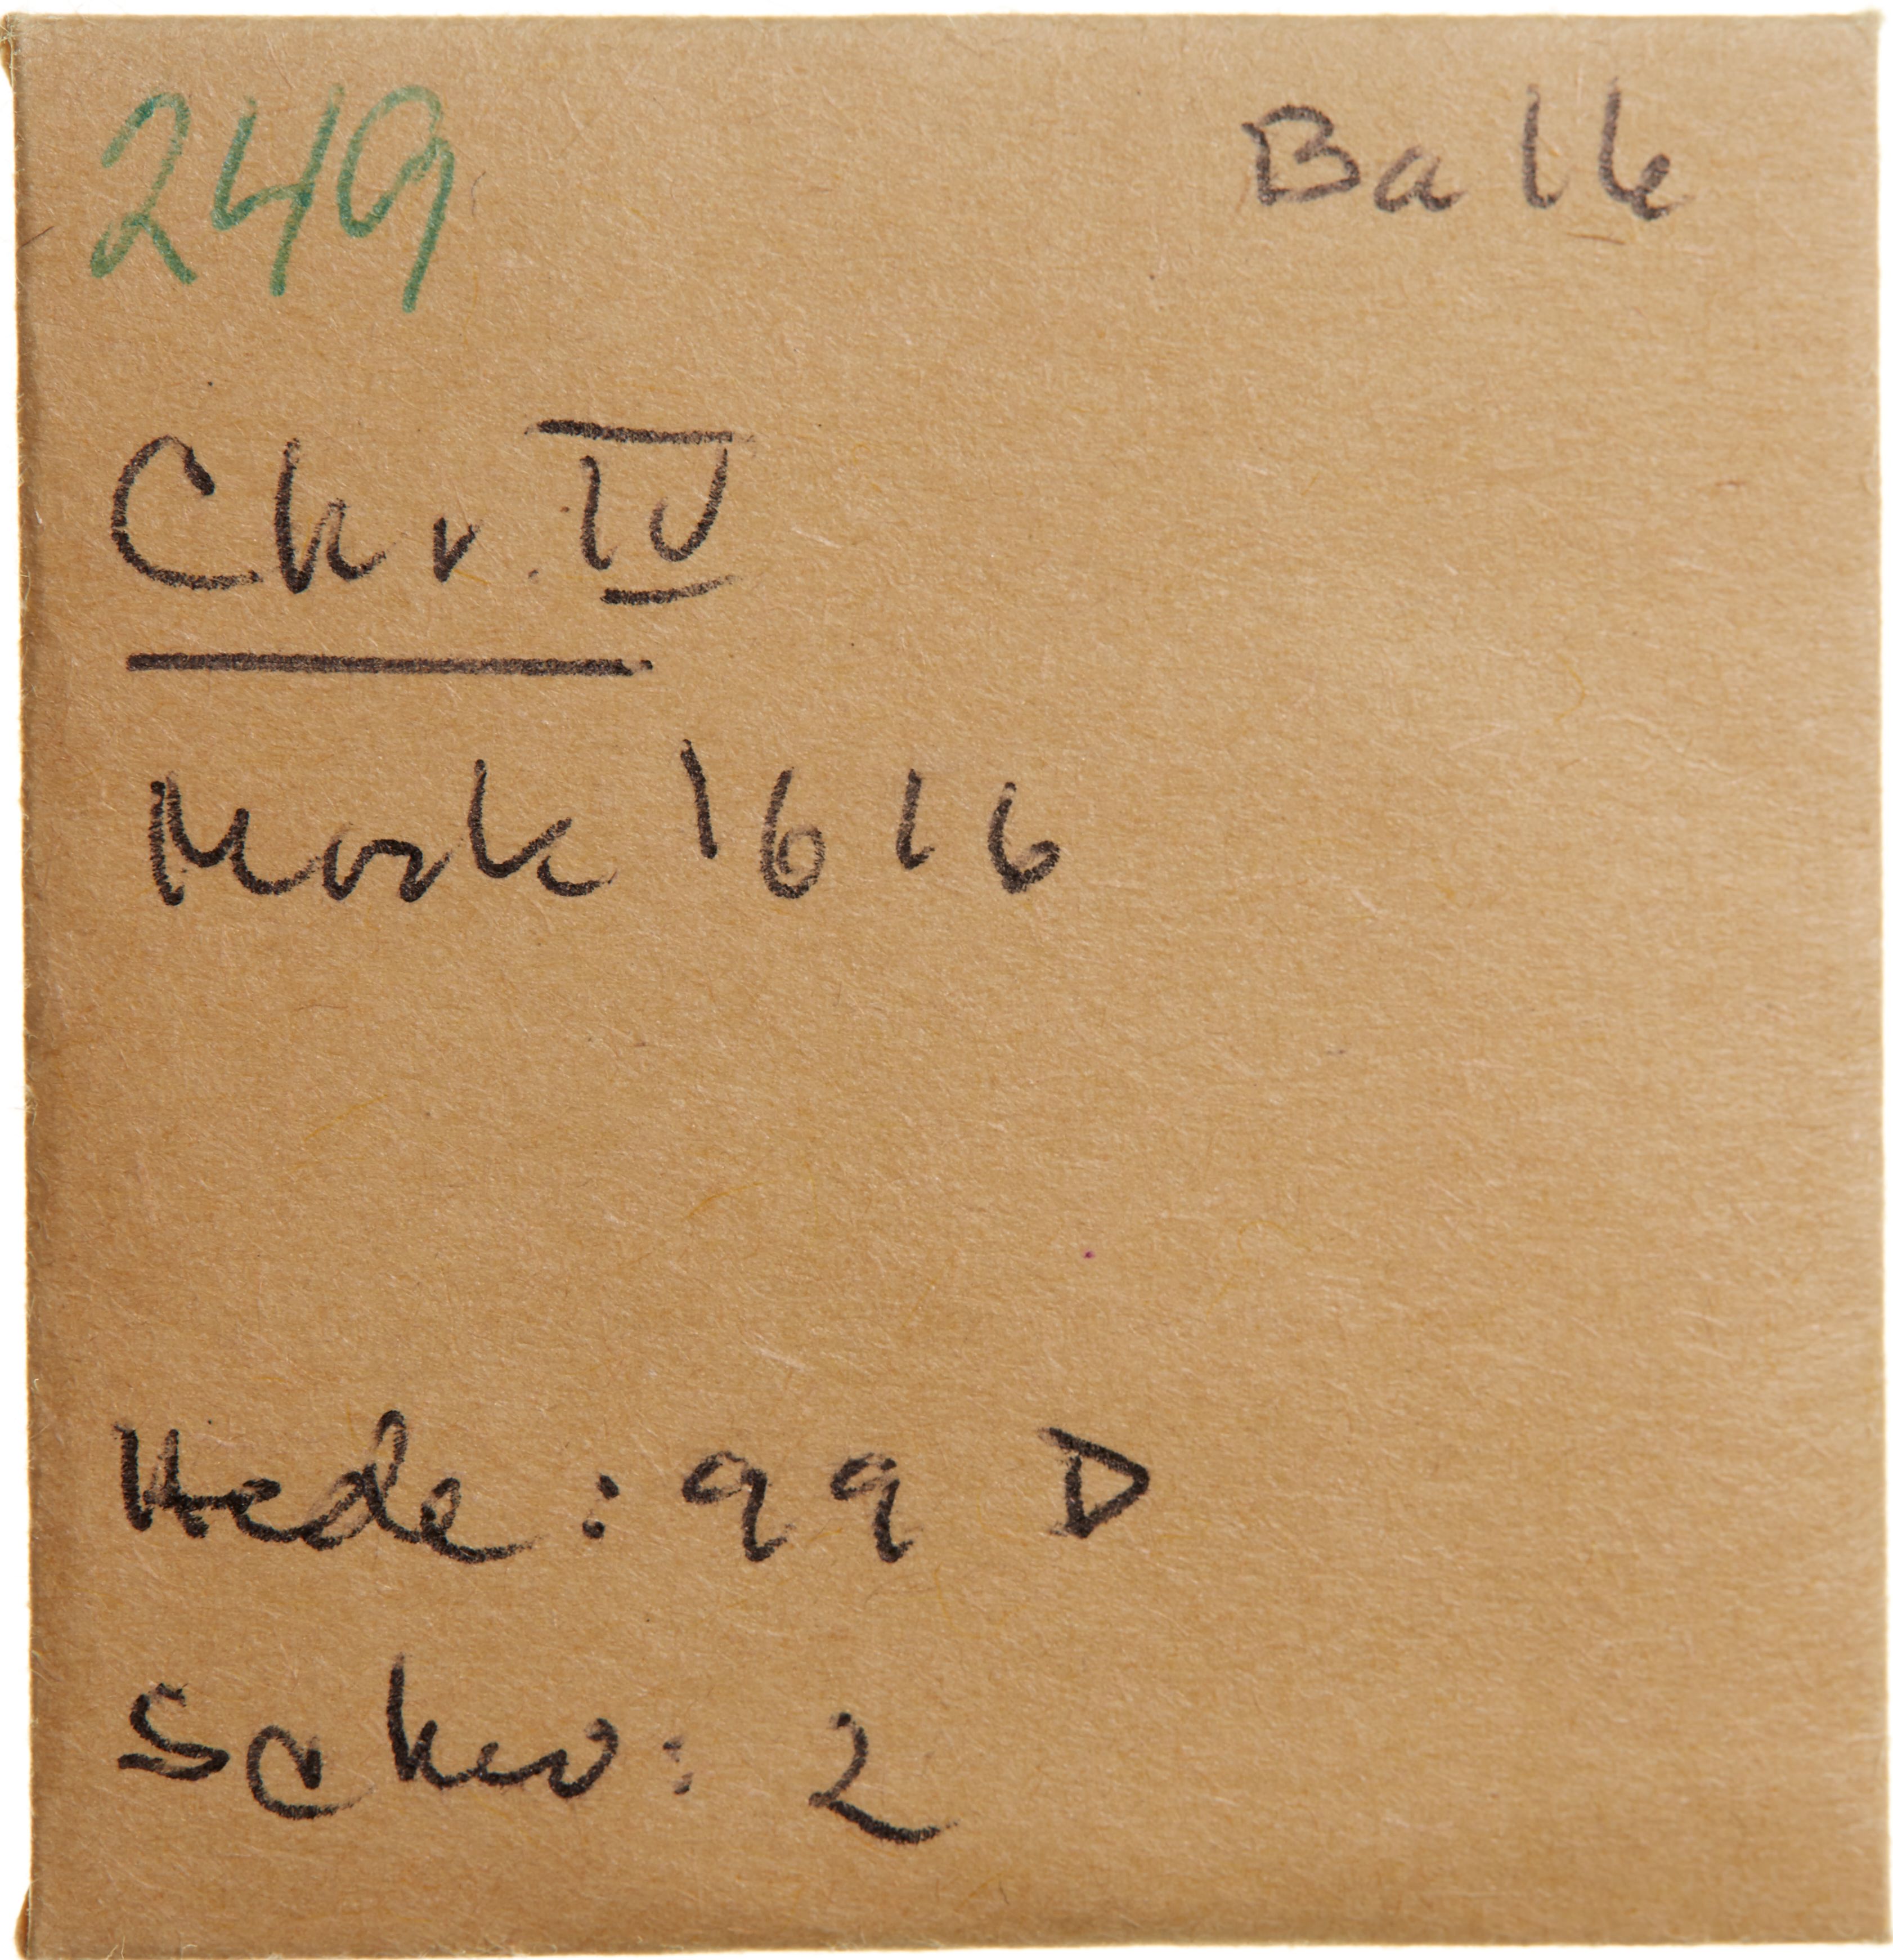 249 Balle
Chr. IV
Mark 1616
Hede: 99 D
Schou: 2